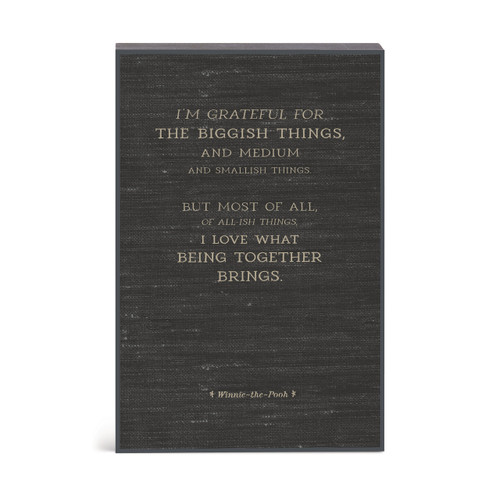 I'M GRATEFUL FOR
THE BIGGISH THINGS,
AND MEDIUM
AND SMALLISH THINGS.
BUT MOST OF ALL,
OF ALL-ISH THINGS,
I LOVE WHAT
BEING TOGETHER
BRINGS.
Winnie-the-Pooh